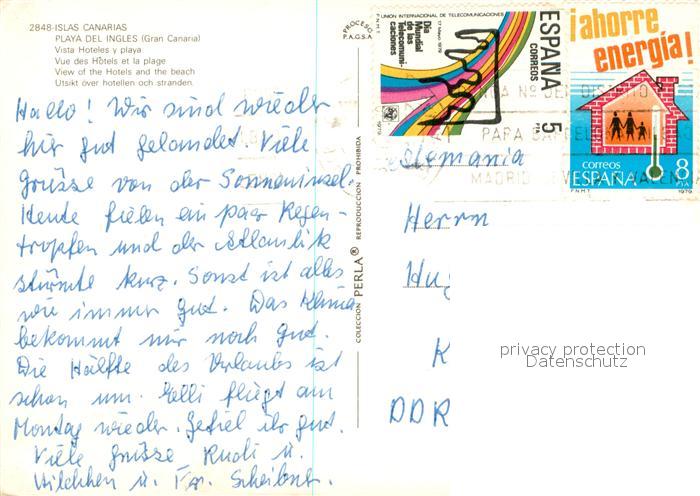 2848-ISLAS CANARIAS
PLAYA DEL INGLES (Gran Canaria)
Vista Hoteles y playa
Vue des Hôtels et la plage
View of the Hotels and the beach
Utsikt över hotellen och stranden.
Hallo! Wir sind wieder
hier gut gelandet. Viele
Grüsse von der Sonneninsel.
Heute fielen ein paar Regen-
tropfen und der Atlantik
stürmte kurz. Sonst ist alles
wie immer gut. Das Klima
bekommt mir noch gut.
Die Hälfte des Urlaubs ist
schon um. Elli fliegt am
Montag wieder. Gefiel ihr gut.
Viele Grüsse Rudi u.
Hilchen u. Scheibner.
COLECCION PERLA® REPRODUCCION PROHIBIDA
PROCESO
P.A.G.S.A.
F.N.M.T. UNION INTERNACIONAL DE TELECOMUNICACIONES
17 Mayo 1979
Día
Mundial
de las
Telecomuni-
caciones
1979
ESPAÑA
CORREOS
5 PTA
¡ahorre
energía!
correos
ESPAÑA
8 PTA
F.N.M.T. 1979
PARA
MADRID
Alemania
Herrn
Hu
K
DDR
privacy protection
Datenschutz